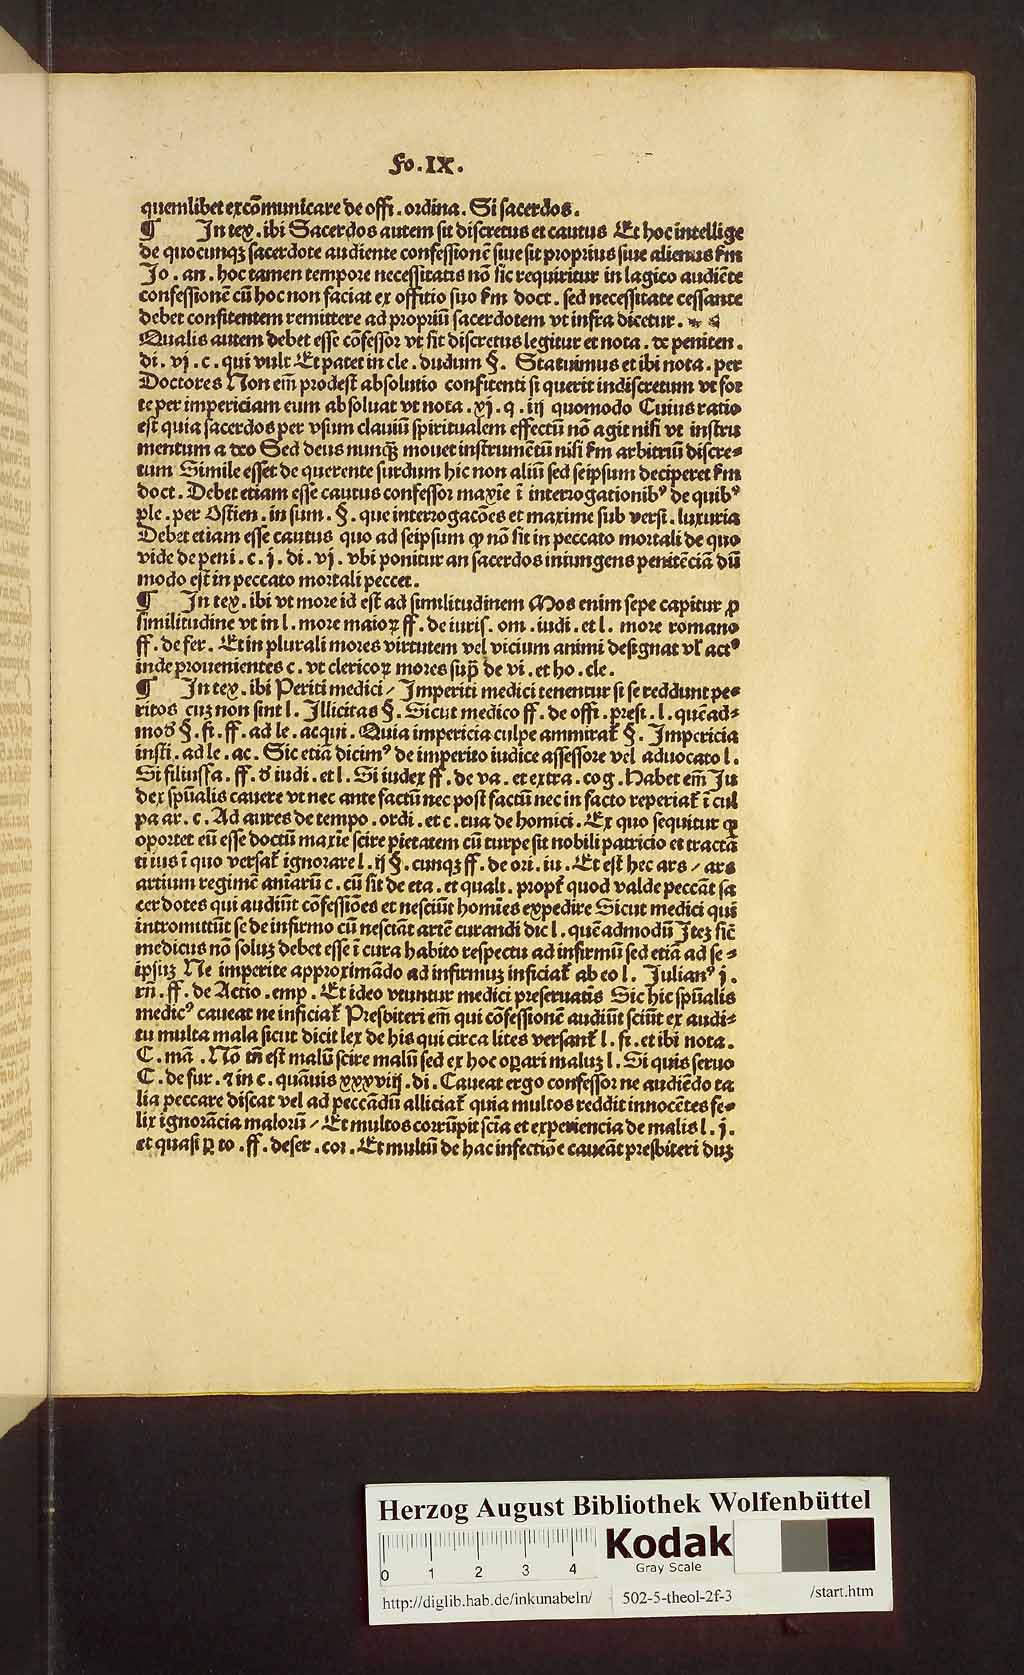 Fo.IX.
quemlibet excõmunicare de offi. ordina. Si sacerdos.
¶ In tex. ibi Sacerdos autem sit discretus et cautus Et hoc intellige
de quocunqꝫ sacerdote audiente confessionẽ siue sit proprius siue alienus ẜm
Jo. an. hoc tamen tempore necessitatis nõ sic requiritur in lagico audiẽte
confessionẽ cũ hoc non faciat ex offitio suo ẜm doct. sed necessitate cessante
debet confitentem remittere ad propriũ sacerdotem vt infra dicetur.
Qualis autem debet esse cõfessor vt sit discretus legitur et nota. de peniten.
di. vj. c. qui vult Et patet in cle. dudum §. Statuimus et ibi nota. per
Doctores Non em̃ prodest absolutio confitenti si querit indiscretum vt for
te per impericiam eum absoluat vt nota. xj. q. iij quomodo Cuius ratio
est quia sacerdos per vsum clauiũ spiritualem effectũ nõ agit nisi vt instru
mentum a deo Sed deus nunqꝫ mouet instrumẽtũ nisi ẜm arbitriũ discre⸗
tum Simile esset de querente surdum hic non aliũ sed seipsum deciperet ẜm
doct. Debet etiam esse cautus confessor maxĩe ĩ interrogationibꝰ de quibꝰ
ple. per Ostien. in sum. §. que interrogacões et maxime sub versi. luxuria
Debet etiam esse cautus quo ad seipsum ꝙ nõ sit in peccato mortali de quo
vide de peni. c. j. di. vj. vbi ponitur an sacerdos iniungens penitẽciã dũ
modo est in peccato mortali peccet.
¶ In tex. ibi vt more id est ad similitudinem Mos enim sepe capitur ꝓ
similitudine vt in l. more maioꝝ ff. de iuris. om. iudi. et l. more romano
ff. de fer. Et in plurali mores virtutem vel vicium animi designat vl̃ actꝰ
inde prouenientes c. vt clericoꝝ mores sup̃ de vi. et ho. cle.
¶ In tex. ibi Periti medici / Imperiti medici tenentur si se reddunt pe⸗
ritos cuꝫ non sint l. Illicitas §. Sicut medico ff. de offi. presi. l. quẽad⸗
mod̃ §. fi. ff. ad le. acqui. Quia impericia culpe ammiratʼ §. Impericia
insti. ad le. ac. Sic etiã dicimꝰ de imperito iudice assessore vel aduocato l.
Si filiusfa. ff. d̃ iudi. et l. Si iudex ff. de va. et extra. cog. Habet em̃ Ju
dex spũalis cauere vt nec ante factũ nec post factũ nec in facto reperiatʼ ĩ cul
pa ar. c. Ad aures de tempo. ordi. et c. tua de homici. Ex quo sequitur ꝙ
oportet eũ esse doctũ maxĩe scire pietatem cũ turpe sit nobili patricio et tractã
ti ius ĩ quo versatʼ ignorare l. ij §. cunqꝫ ff. de ori. iu. Et est hec ars / ars
artium regimẽ aniarũ c. cũ sit de eta. et quali. proptʼ quod valde peccãt sa
cerdotes qui audiũt cõfessiões et nesciũt homĩes expedire Sicut medici qui
intromittũt se de infirmo cũ nesciãt artẽ curandi dic l. quẽadmodũ Jteꝫ sic̃
medicus nõ soluꝫ debet esse ĩ cura habito respectu ad infirmũ sed etiã ad se⸗
ipsuꝫ Ne imperite approximãdo ad infirmuꝫ inficiatʼ ab eo l. Julianꝰ j.
rñ. ff. de Actio. emp. Et ideo vtuntur medici preseruatĩs Sic hic spũalis
medicꝰ caueat ne inficiatʼ Presbiteri em̃ qui cõfessionẽ audiũt sciũt ex audi⸗
tu multa mala sicut dicit lex de his qui circa lites versantʼ l. fi. et ibi nota.
C. mã. Nõ tñ est malũ scire malũ sed ex hoc oꝑari maluꝫ l. Si quis seruo
C. de fur. ⁊ in c. quãuis xxxviij. di. Caueat ergo confessor ne audiẽdo ta
lia peccare discat vel ad peccãdũ alliciatʼ quia multos reddit innocẽtes fe⸗
lix ignorãcia malorũ / Et multos corrũpit scĩa et experiencia de malis l. j.
et quasi ꝑ to. ff. de ser. cor. Et multũ de hac infectiõe caueãt presbiteri duꝫ
Herzog August Bibliothek Wolfenbüttel
Kodak
Gray Scale
0 1 2 3 4
http://diglib.hab.de/inkunabeln/ 502-5-theol-2f-3 /start.htm